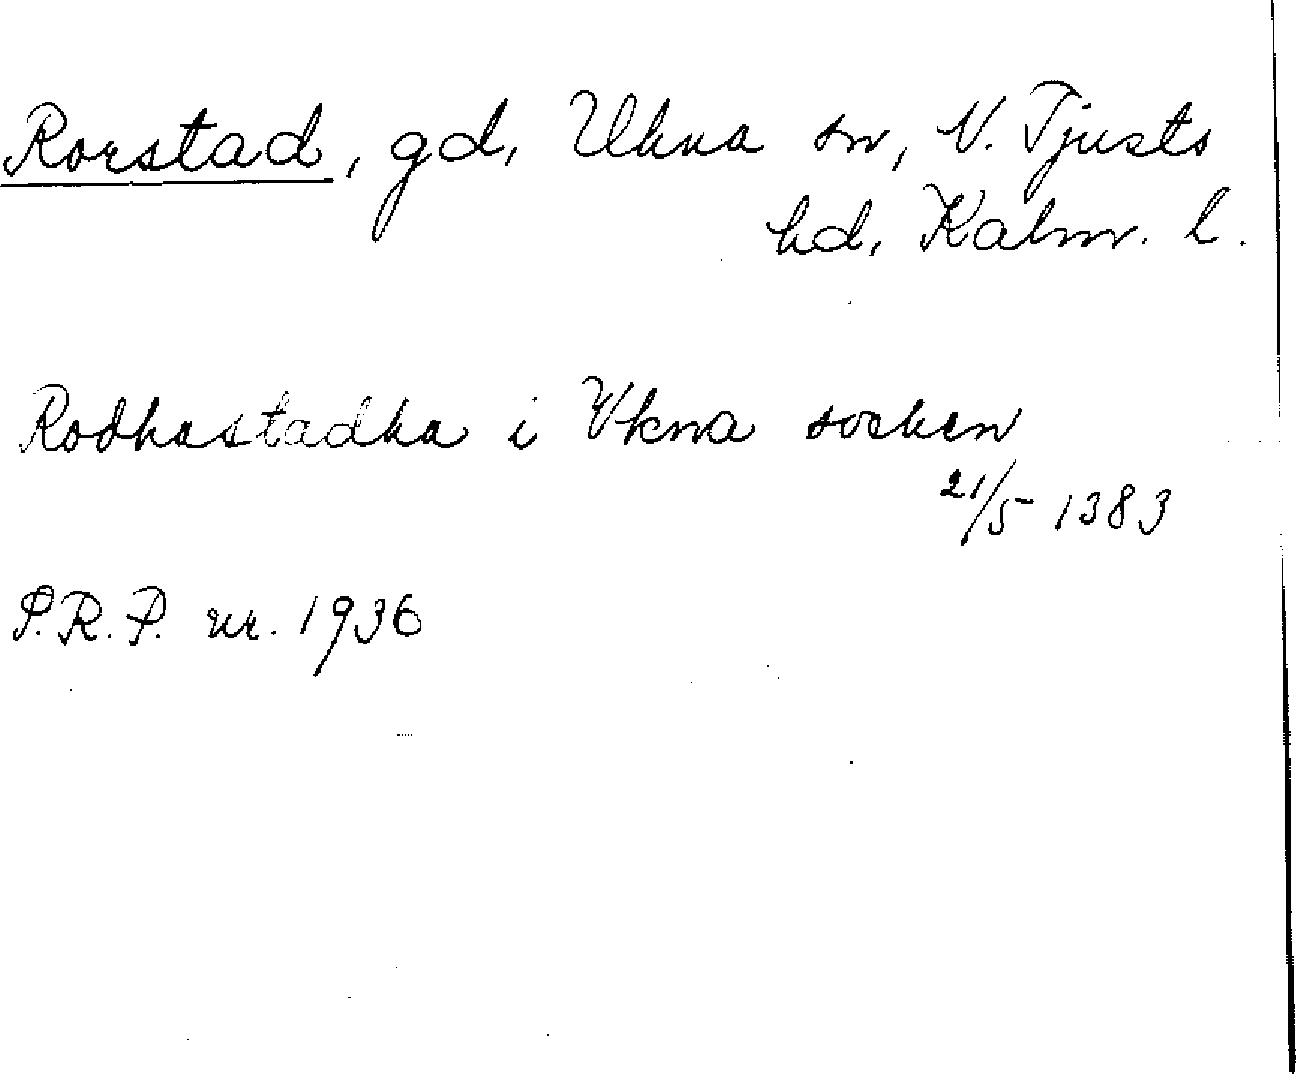 Rorstad, gd, Ukna sn, N. Tjusts
hd, Kalm. l.
Rodhastadha i Vkna socken
21/5 1383
P.R.P. nr. 1936